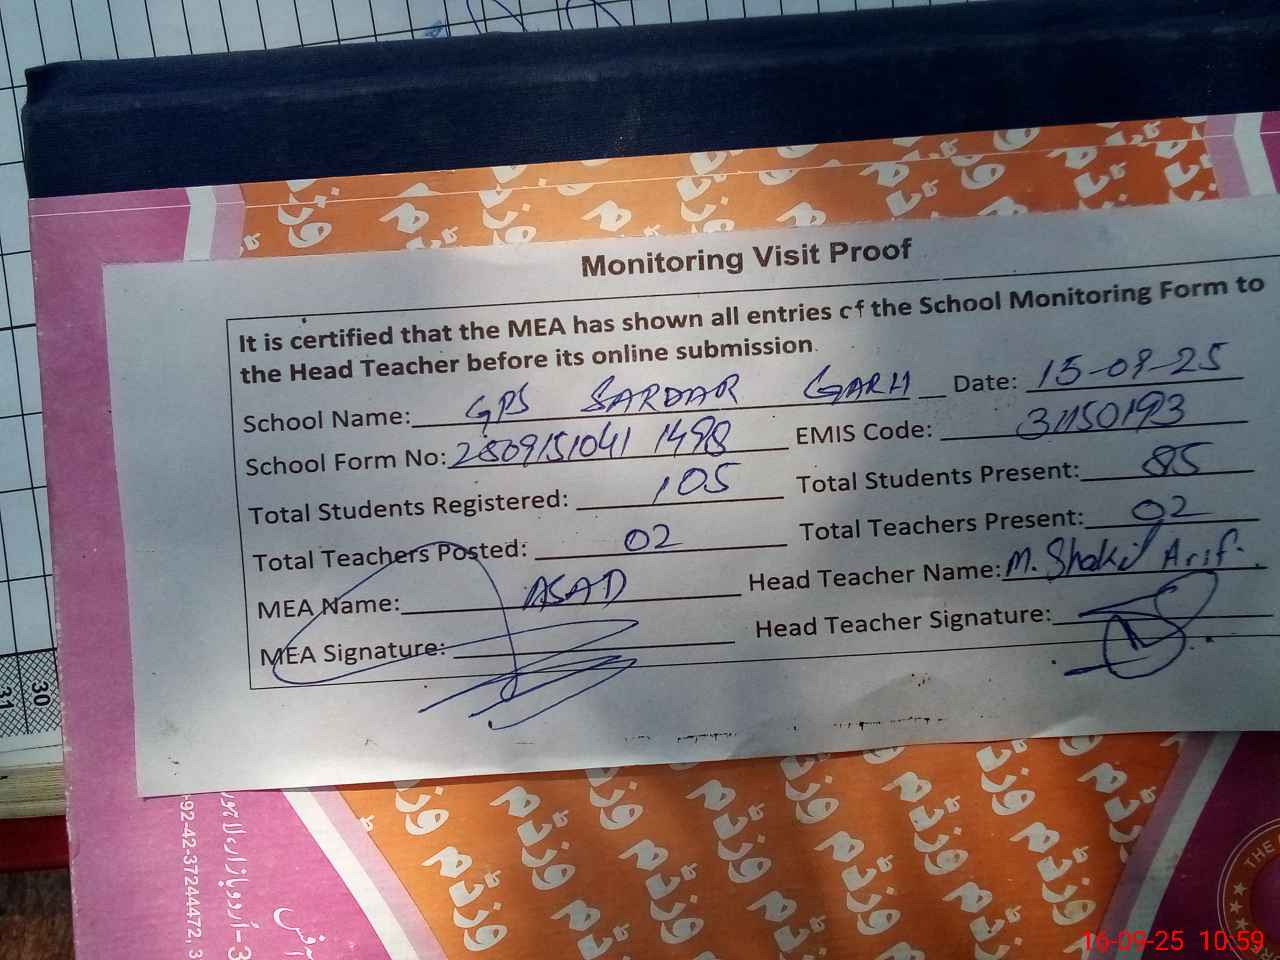 Monitoring Visit Proof
It is certified that the MEA has shown all entries of the School Monitoring Form to
the Head Teacher before its online submission.
School Name: GPS SARDAR GARH Date: 15-09-25
School Form No: 28091510411498 EMIS Code: 31150193
Total Students Registered: 105 Total Students Present: 85
Total Teachers Posted: 02 Total Teachers Present: 02
MEA Name: ASAD Head Teacher Name: M. Shakil Arif.
MEA Signature: Head Teacher Signature:
30
31
آفس
3-اُردو بازار، لاہور
-92-42-37244472, 3
THE
16-09-25 10:59